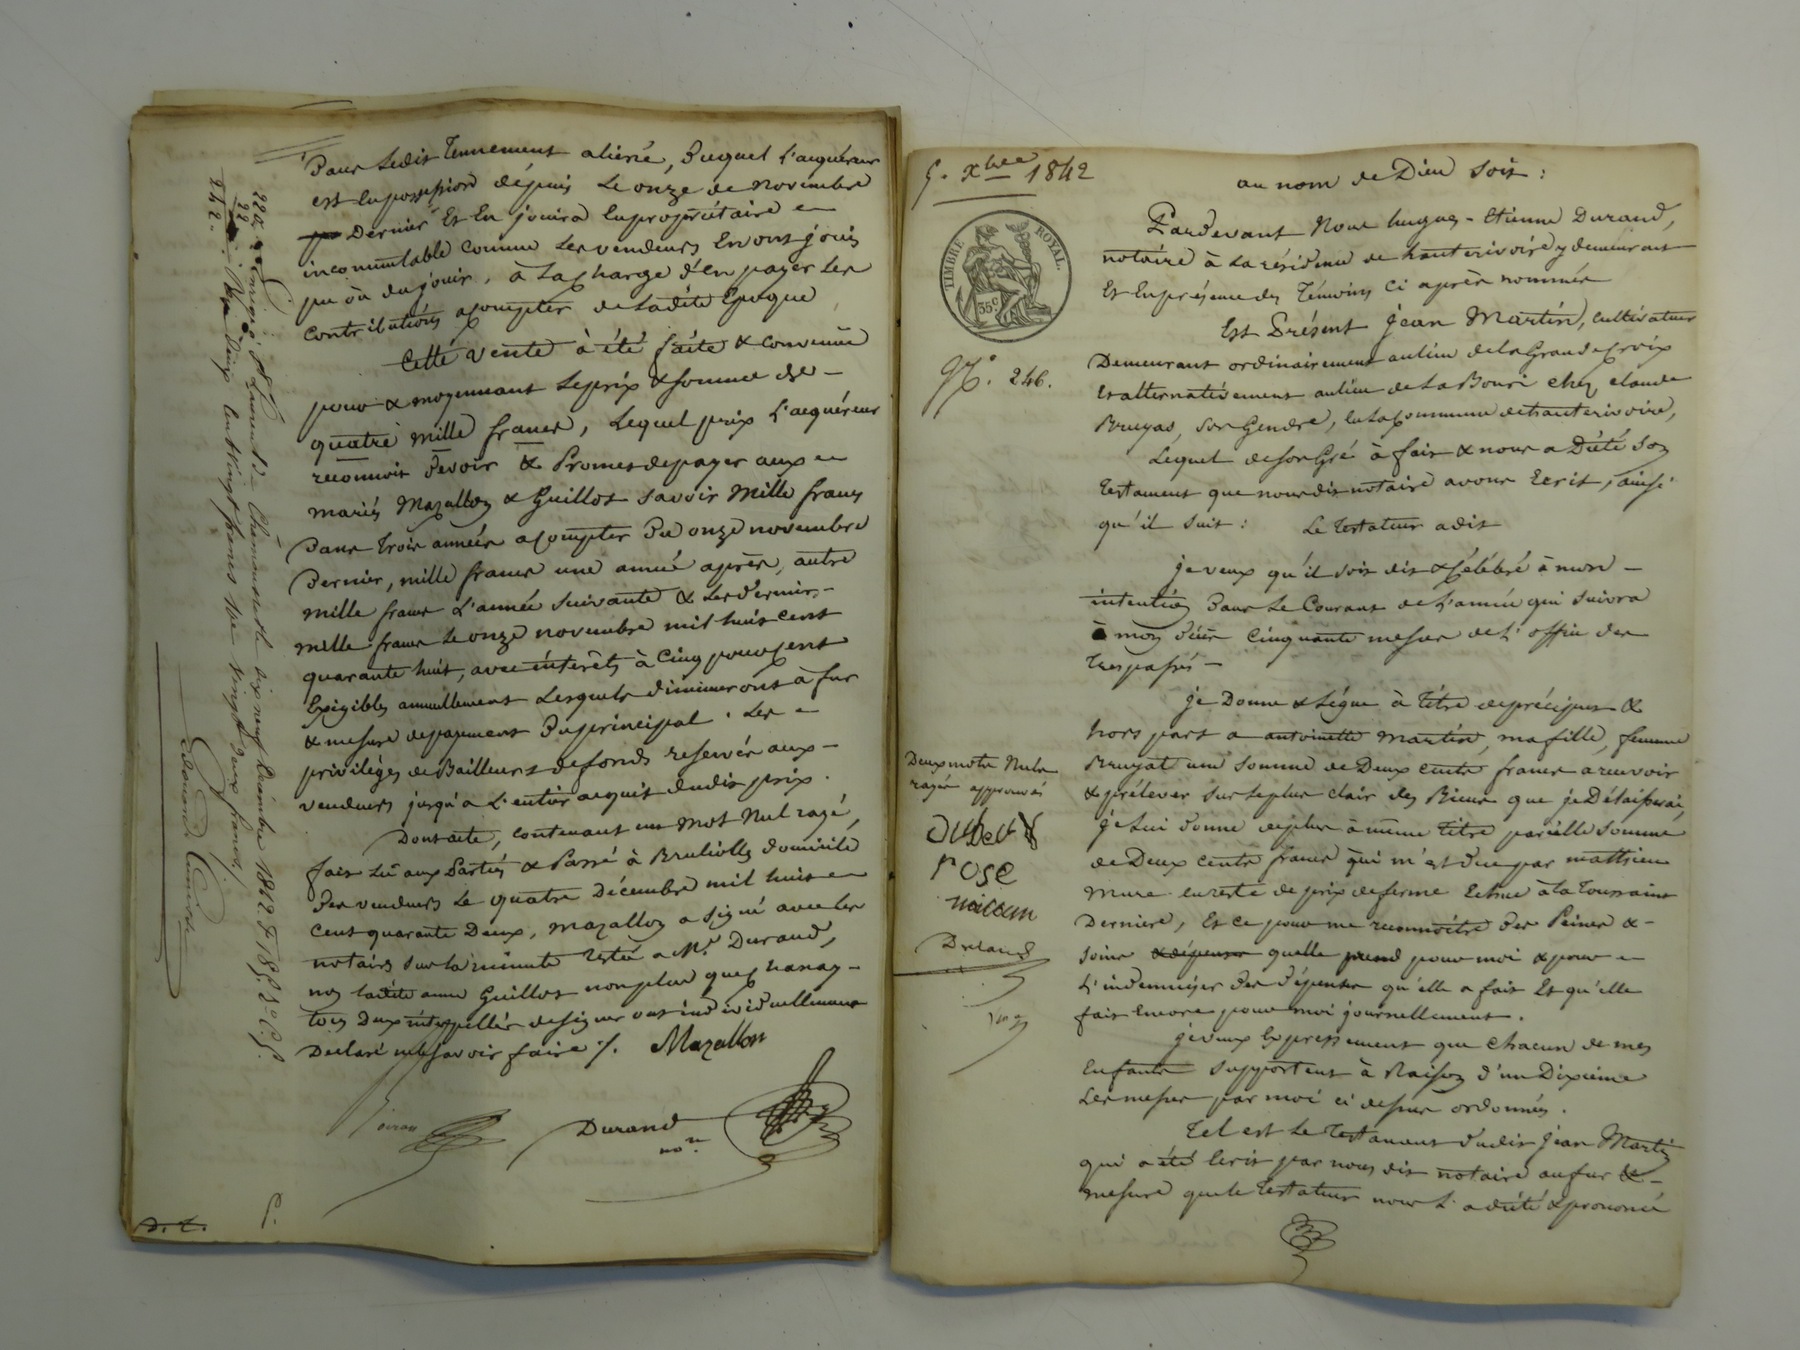 Dans ledit Tennement aliéné, Duquel l'acquéreur
est en possession depuis le onze de novembre
Dernier Et En jouira En propriétaire
incommutable comme Les vendeurs En ont joui
pu ou du jouir, à La charge d'en payer les
contributions à compter de ladite Epoque
Cette vente à été faite & convenue
pour & moyennant le prix & somme de
quatre mille francs, Lequel prix L'acquéreur
reconnoit devoir & Promet de payer aux
mariés Mazallon & Guillot savoir Mille francs
Dans trois années à compter Du onze novembre
Dernier, mille francs une année après, autre
mille francs L'année suivante & Les derniers
mille francs Le onze novembre mil huit cent
quarante huit, avec intérêts à Cinq pour cent
Exigibles annuellement Lesquels diminueront à fur
& mesure de payement Du principal. Les
privilèges de Bailleurs de fonds réservés aux
vendeurs jusqu'à L'entier acquit dudit prix.
Dont acte, contenant un mot Nul rayé,
fait Lu aux Parties & Passé à Brullioles domicile
Des vendeurs Le quatre Décembre mil huit
cent quarante Deux, Mazallon a signé avec les
notaires sur la minute restée a Me. Durand,
non ladite anne Guillot non plus que
tous Deux interpellés de signer ont individuellement
Déclaré ne savoir faire ./. Mazallon
Durand
nore.
220.
22
242.
Enregistré à St Laurent de Chamousset le dix neuf Décembre 1842 F
Reçu Deux cent vingt francs
vingt deux francs.
D. E.
5. Xbre 1842
TIMBRE ROYAL.
35c
No. 246.
au nom de Dieu soit :
Pardevant Nous hugues-Etienne Durand,
notaire à La résidence de hauterivoire y demeurant
Et En présence des Témoins Ci après nommés
Est Présent Jean Martin, Cultivateur
Demeurant ordinairement au lieu de la Grande Croix
et alternativement au lieu de La Bouri chez claude
Bruyas, son Gendre, en La Commune de hauterivoire,
Lequel de son Gré à fait & nous a Dicté son
testament que nous dit notaire avons Ecrit, ainsi
qu'il suit : Le Testateur a dit
je veux qu'il soit dit & Célébré à mon
intention Dans Le Courant de L'année qui suivra
à mon décès Cinquante messes de L'office des
trespassés
je Donne & Lègue à Titre de préciput &
hors part a antoinette Martin, ma fille, femme
Bruyat une somme de Deux cents francs a recevoir
& prélever sur le plus clair des Biens que je Délaisserai,
je Lui donne de plus à même titre pareille somme
de Deux cents francs qui m'est due par mathieu
Mure en reste de prix de ferme Echue à la Toussaint
Dernière, Et ce pour me reconnoitre des Peines &
soins & dépenses quelle prend pour moi & pour
L'indemniser des dépenses qu'elle a fait Et qu'elle
fait Encore pour moi journellement.
je veux Expressement que chacun de mes
Enfants supportent à Raison d'un Dixième
Les messes par moi ci dessus ordonnées.
Tel est Le Testament dudit Jean Martin
qui a été Ecrit par nous dit notaire au fur &
mesure que le Testateur nous L'a dicté & prononcé
Deux mots Nuls
rayés approuvés
Durand